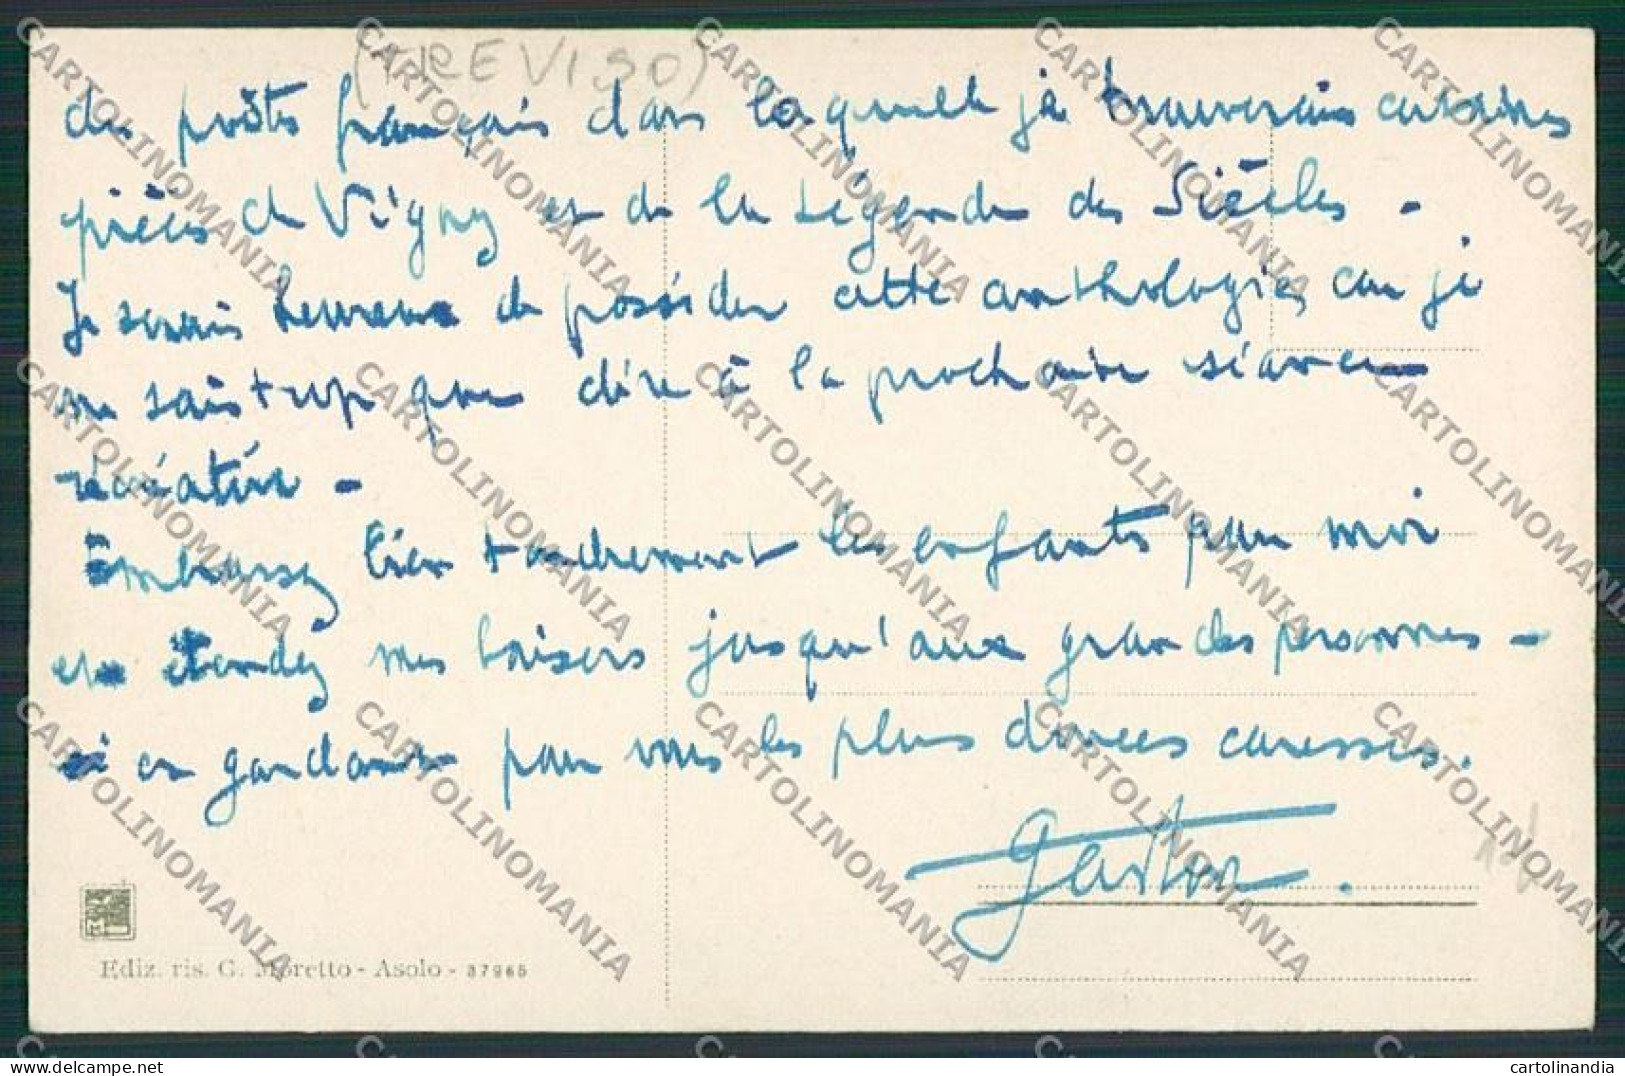 (TREVISO)
de poètes français dans laquelle je trouverais certaines
pièces de Vigny et de la Légende des Siècles -
Je serais heureux de posséder cette anthologie, car je
ne sais trop que dire à la prochaine séance
récréative -
Embrassez bien tendrement les enfants pour moi
et étendez mes baisers jusqu'aux grandes personnes -
en gardant pour vous les plus douces caresses.
Gaston.
Ediz. ris. G. Moretto - Asolo - 37965
CARTOLINOMANIA
cartolinandia